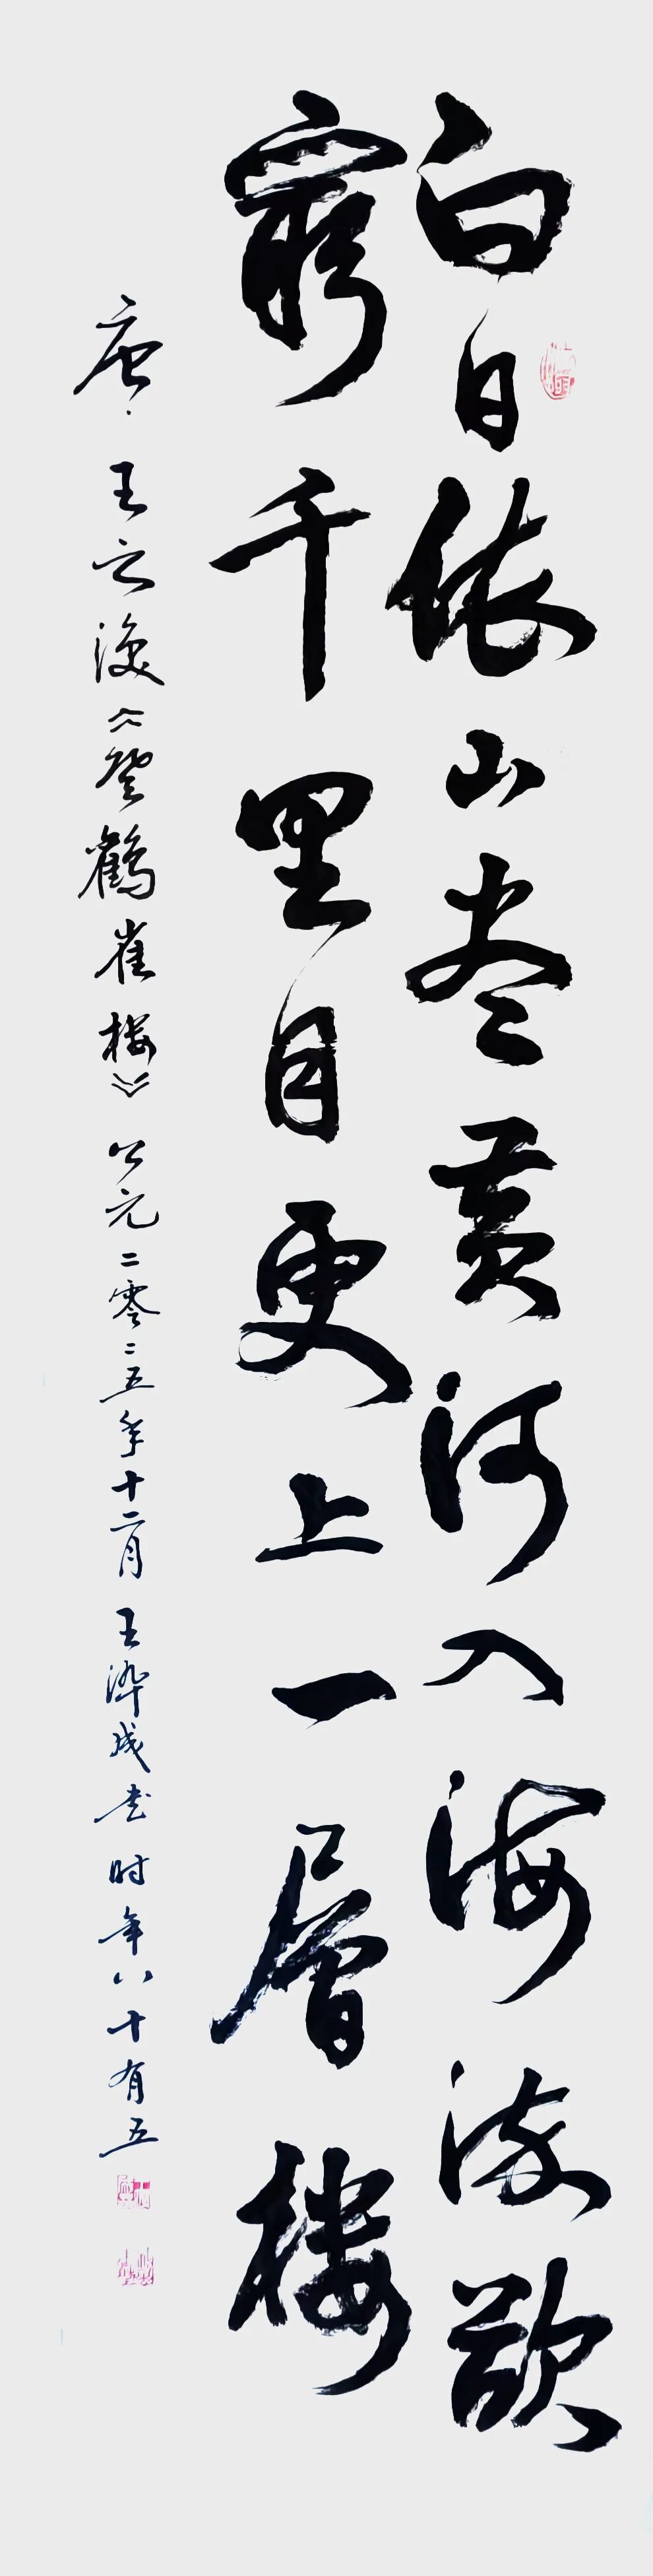 白日依山尽黄河入海流欲
窮千里目更上一層楼
唐·王之涣《登鹳雀楼》公元二零二五年十二月王泽成书时年八十有五